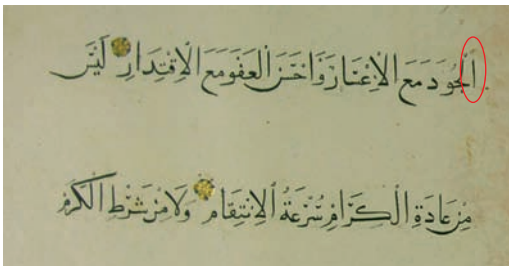 الْجُود مَعَ الْاِعْسَار وَاَحْسَن الْعَفْو مَع الْاِقْتِدَار لَيْسَ
مِنْ عَادَةِ الْكِرَامِ سُرْعَةُ الْاِنْتِقَام وَلَا مِنْ شَرْطِ الْكَرَم